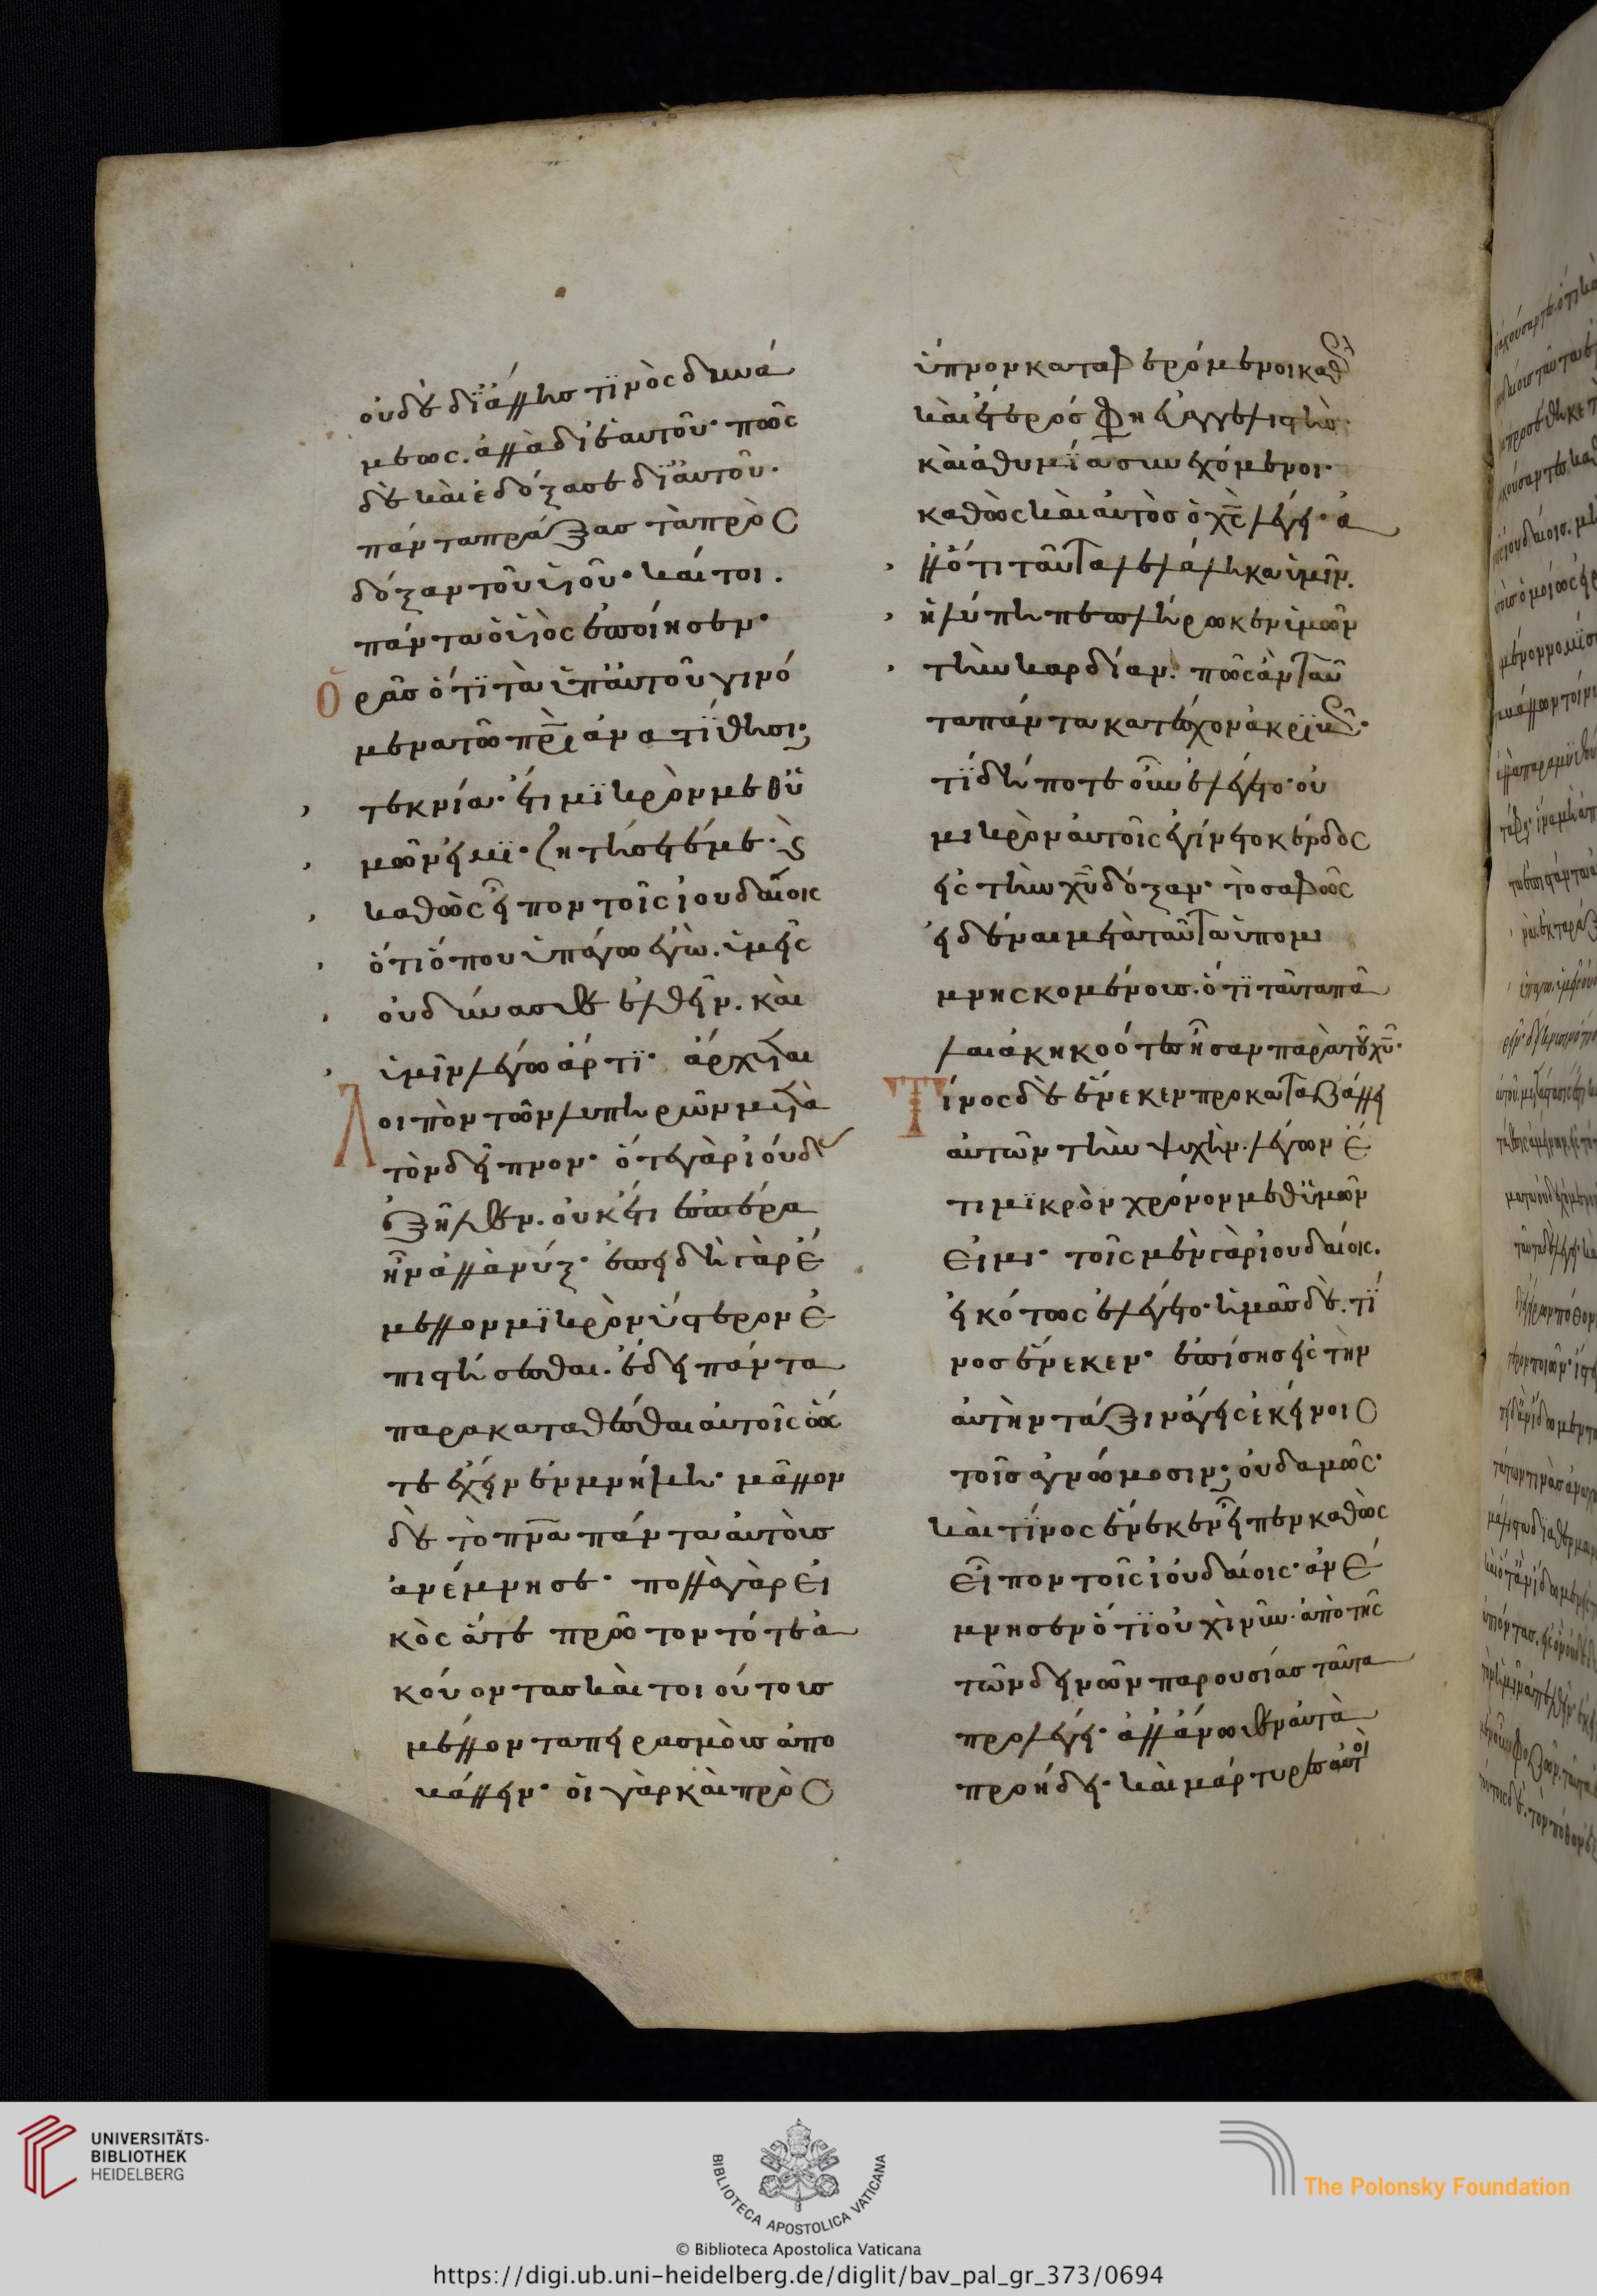 οὐδὲ δι' ἄλλης τινὸς δυνά
μεως. ἀλλὰ δι' ἑαυτοῦ· πῶς
δὲ καὶ ἐδόξασε δι' αὐτοῦ·
πάντα πράξας τὰ πρὸς
δόξαν τοῦ υἱοῦ· καίτοι.
πάντα ὁ υἱὸς ἐποίησεν·
ὁρᾶς ὅτι τὰ ὑπ' αὐτοῦ γινό
μενα τῶ πρὶ ἀνατίθησι;
τεκνία· ἔτι μικρὸν μεθ' ὑ
μῶν εἰμι· ζητήσετέ με· καὶ
καθὼς εἶπον τοῖς ἰουδαίοις
ὅτι ὅπου ὑπάγω ἐγὼ. ὑμεῖς
οὐ δύνασθε ἐλθεῖν. καὶ
ὑμῖν λέγω ἄρτι· ἄρχεται
λοιπὸν τῶν λυπηρῶν μετὰ
τὸν δεῖπνον· ὅτε γὰρ ἰούδας
ἐξῆλθεν. οὐκέτι ἑσπέρα
ἦν ἀλλὰ νύξ· ἐπειδὴ γὰρ ἔ
μελλον μικρὸν ὕστερον ἐ
πιστήσεσθαι. ἔδει πάντα
παρακαταθέσθαι αὐτοῖς ὥσ
τε ἔχειν ἐν μνήμη· μᾶλλον
δὲ τὸ πνα πάντα αὐτοὺς
ἀνέμνησε· πολλὰ γὰρ εἰ
κὸς ἅτε πρῶτον τότε ἀ
κούοντας καὶ τοιούτους
μέλλοντα πειρασμοὺς ἀπο
κάλλειν· οἱ γὰρ καὶ πρὸς
ὕπνον καταφερόμενοι καθὼς
καὶ ἕτερός φησιν εὐαγγελιστὴς·
καὶ ἀθυμία συνεχόμενοι·
καθὼς καὶ αὐτὸς ὁ χς λέγει· ἀ
λλ' ὅτι ταῦτα λελάληκα ὑμῖν.
ἡ λύπη πεπλήρωκεν ὑμῶν
τὴν καρδίαν. πῶς ἂν ταῦ
τα πάντα κατέσχον ἀκριβῶς·
τί δήποτε οὖν ἐλέγετο· οὐ
μικρὸν αὐτοῖς ἐγίνετο κέρδος
εἰς τὴν χυ δόξαν· τὸ σαφῶς
εἰδέναι μετὰ ταῦτα ὑπομι
μνησκομένους. ὅτι ταῦτα πά
λαι ἀκηκοότες ἦσαν παρὰ τοῦ χυ·
τίνος δὲ ἕνεκεν προκαταβάλλει
αὐτῶν τὴν ψυχὴν. λέγων ἔ
τι μικρὸν χρόνον μεθ' ὑμῶν
εἰμι· τοῖς μὲν γὰρ ἰουδαίοις.
εἰκότως ἐλέγετο· ὑμᾶς δὲ. τί
νος ἕνεκεν· ἐπίσης εἰς τὴν
αὐτὴν τάξιν ἄγεις ἐκείνοις
τοῖς ἀγνώμοσιν; οὐδαμῶς·
καὶ τίνος ἕνεκεν εἶπεν καθὼς
εἶπον τοῖς ἰουδαίοις· ἀνέ
μνησεν ὅτι οὐχὶ νῦν. ἀπὸ τῆς
τῶν δεινῶν παρουσίας ταῦτα
προλέγει· ἀλλ' ἄνωθεν αὐτὰ
προήδει· καὶ μάρτυρες αὐτοὶ
UNIVERSITÄTS-
BIBLIOTHEK
HEIDELBERG
BIBLIOTECA APOSTOLICA VATICANA
The Polonsky Foundation
© Biblioteca Apostolica Vaticana
https://digi.ub.uni-heidelberg.de/diglit/bav_pal_gr_373/0694